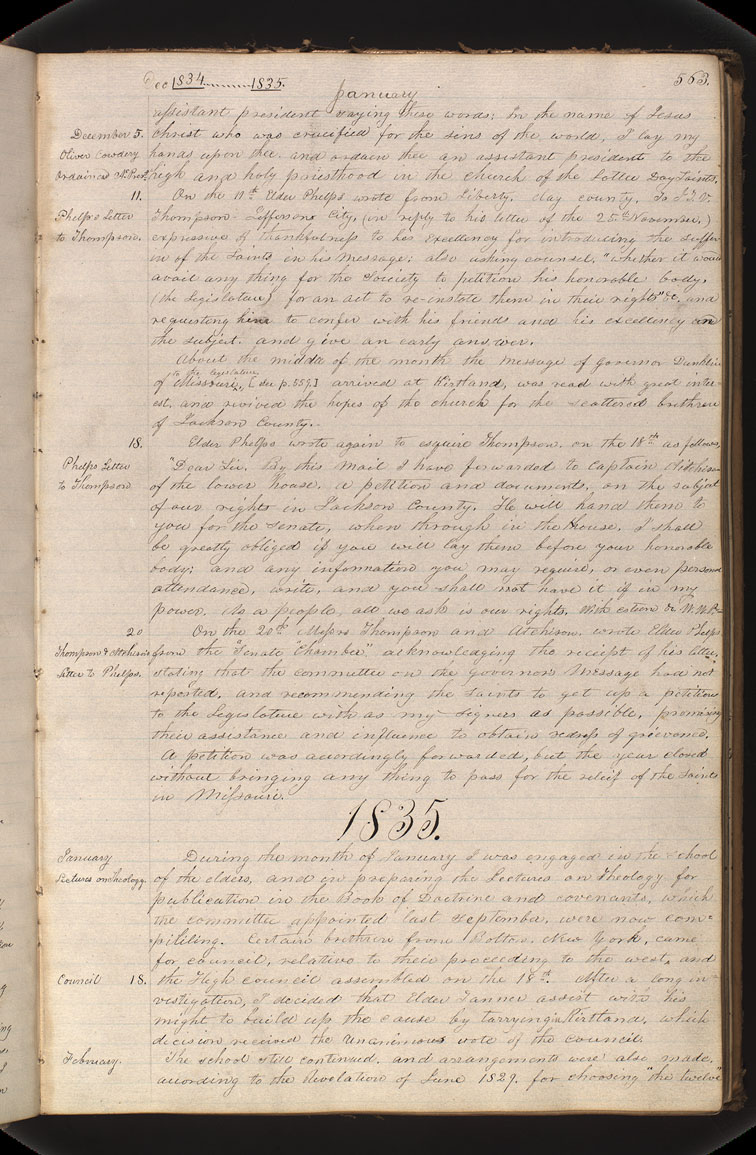 Dec 1834 ........ 1835. 563.
January
assistant president saying these words; In the name of Jesus
December 5. Christ who was crucified for the sins of the world, I lay my
Oliver Cowdery hands upon thee, and ordain thee an assistant president to the
Ordained high and holy priesthood in the church of the Latter Day Saints.
11. On the 11th Elder Phelps wrote from Liberty, Clay county, To J. T. V.
Phelps Letter Thompson Jefferson City, (in reply to his letter of the 25th November,)
to Thompson. expressive of thankfulness to his Excellency for introducing the suffer-
in of the Saints in his Message; also asking counsel, "whether it would
avail any thing for the Society to petition his honorable body,
(the legislature) for an act to re-instate them in their rights" &c. and
requesting him to confer with his friends and his excellency on
the subject. and give an early answer.
About the middle of the month the Message of Governor Dunklin
to the legislature
of Missouri, [see p. 559,] arrived at Kirtland, was read with great inter-
est, and revived the hopes of the church for the scattered brethren
of Jackson County.
18. Elder Phelps wrote again to esquire Thompson, on the 18th as follows,
Phelps Letter "Dear Sir. By this mail I have forwarded to Captain Atchison
to Thompson of the lower house, a petition and documents, on the subject
of our rights in Jackson County. He will hand them to
you for the Senate, when through in the House. I shall
be greatly obliged if you will lay them before your honorable
body; and any information you may require, or even personal
attendance, write, and you shall not have it if in my
power. As a people, all we ask is our rights. With esteem &c W. W. P.
20 On the 20th Messrs Thompson and Atchison, wrote Elder Phelps
Thompson & Atchison's from the Senate "Chamber" acknowledging the receipt of his letter,
Letter to Phelps. stating that the committee on the Governor's Message had not
reported, and recommending the Saints to get up a petition
to the Legislature with as my signers as possible, promising
their assistance and influence to obtain redress of grievance.
A petition was accordingly forwarded, but the year closed
without bringing any thing to pass for the relief of the Saints
in Missouri.
1835.
January During the month of January I was engaged in the school
Lectures on Theology. of the elders, and in preparing the Lectures on Theology for
publication in the Book of Doctrine and covenants, which
the committee appointed last September, were now com-
piliing. Certain brethren from Bolton, New York, came
for council, relative to their proceeding to the west, and
Council 18. the High council assembled on the 18th. After a long in-
vestigation, I decided that Elder Tanner assist with his
might to build up the cause by tarrying in Kirtland, which
decision received the unanimous vote of the council.
February. The school still continued, and arrangements were also made,
according to the Revelation of June 1829. for choosing "the twelve"